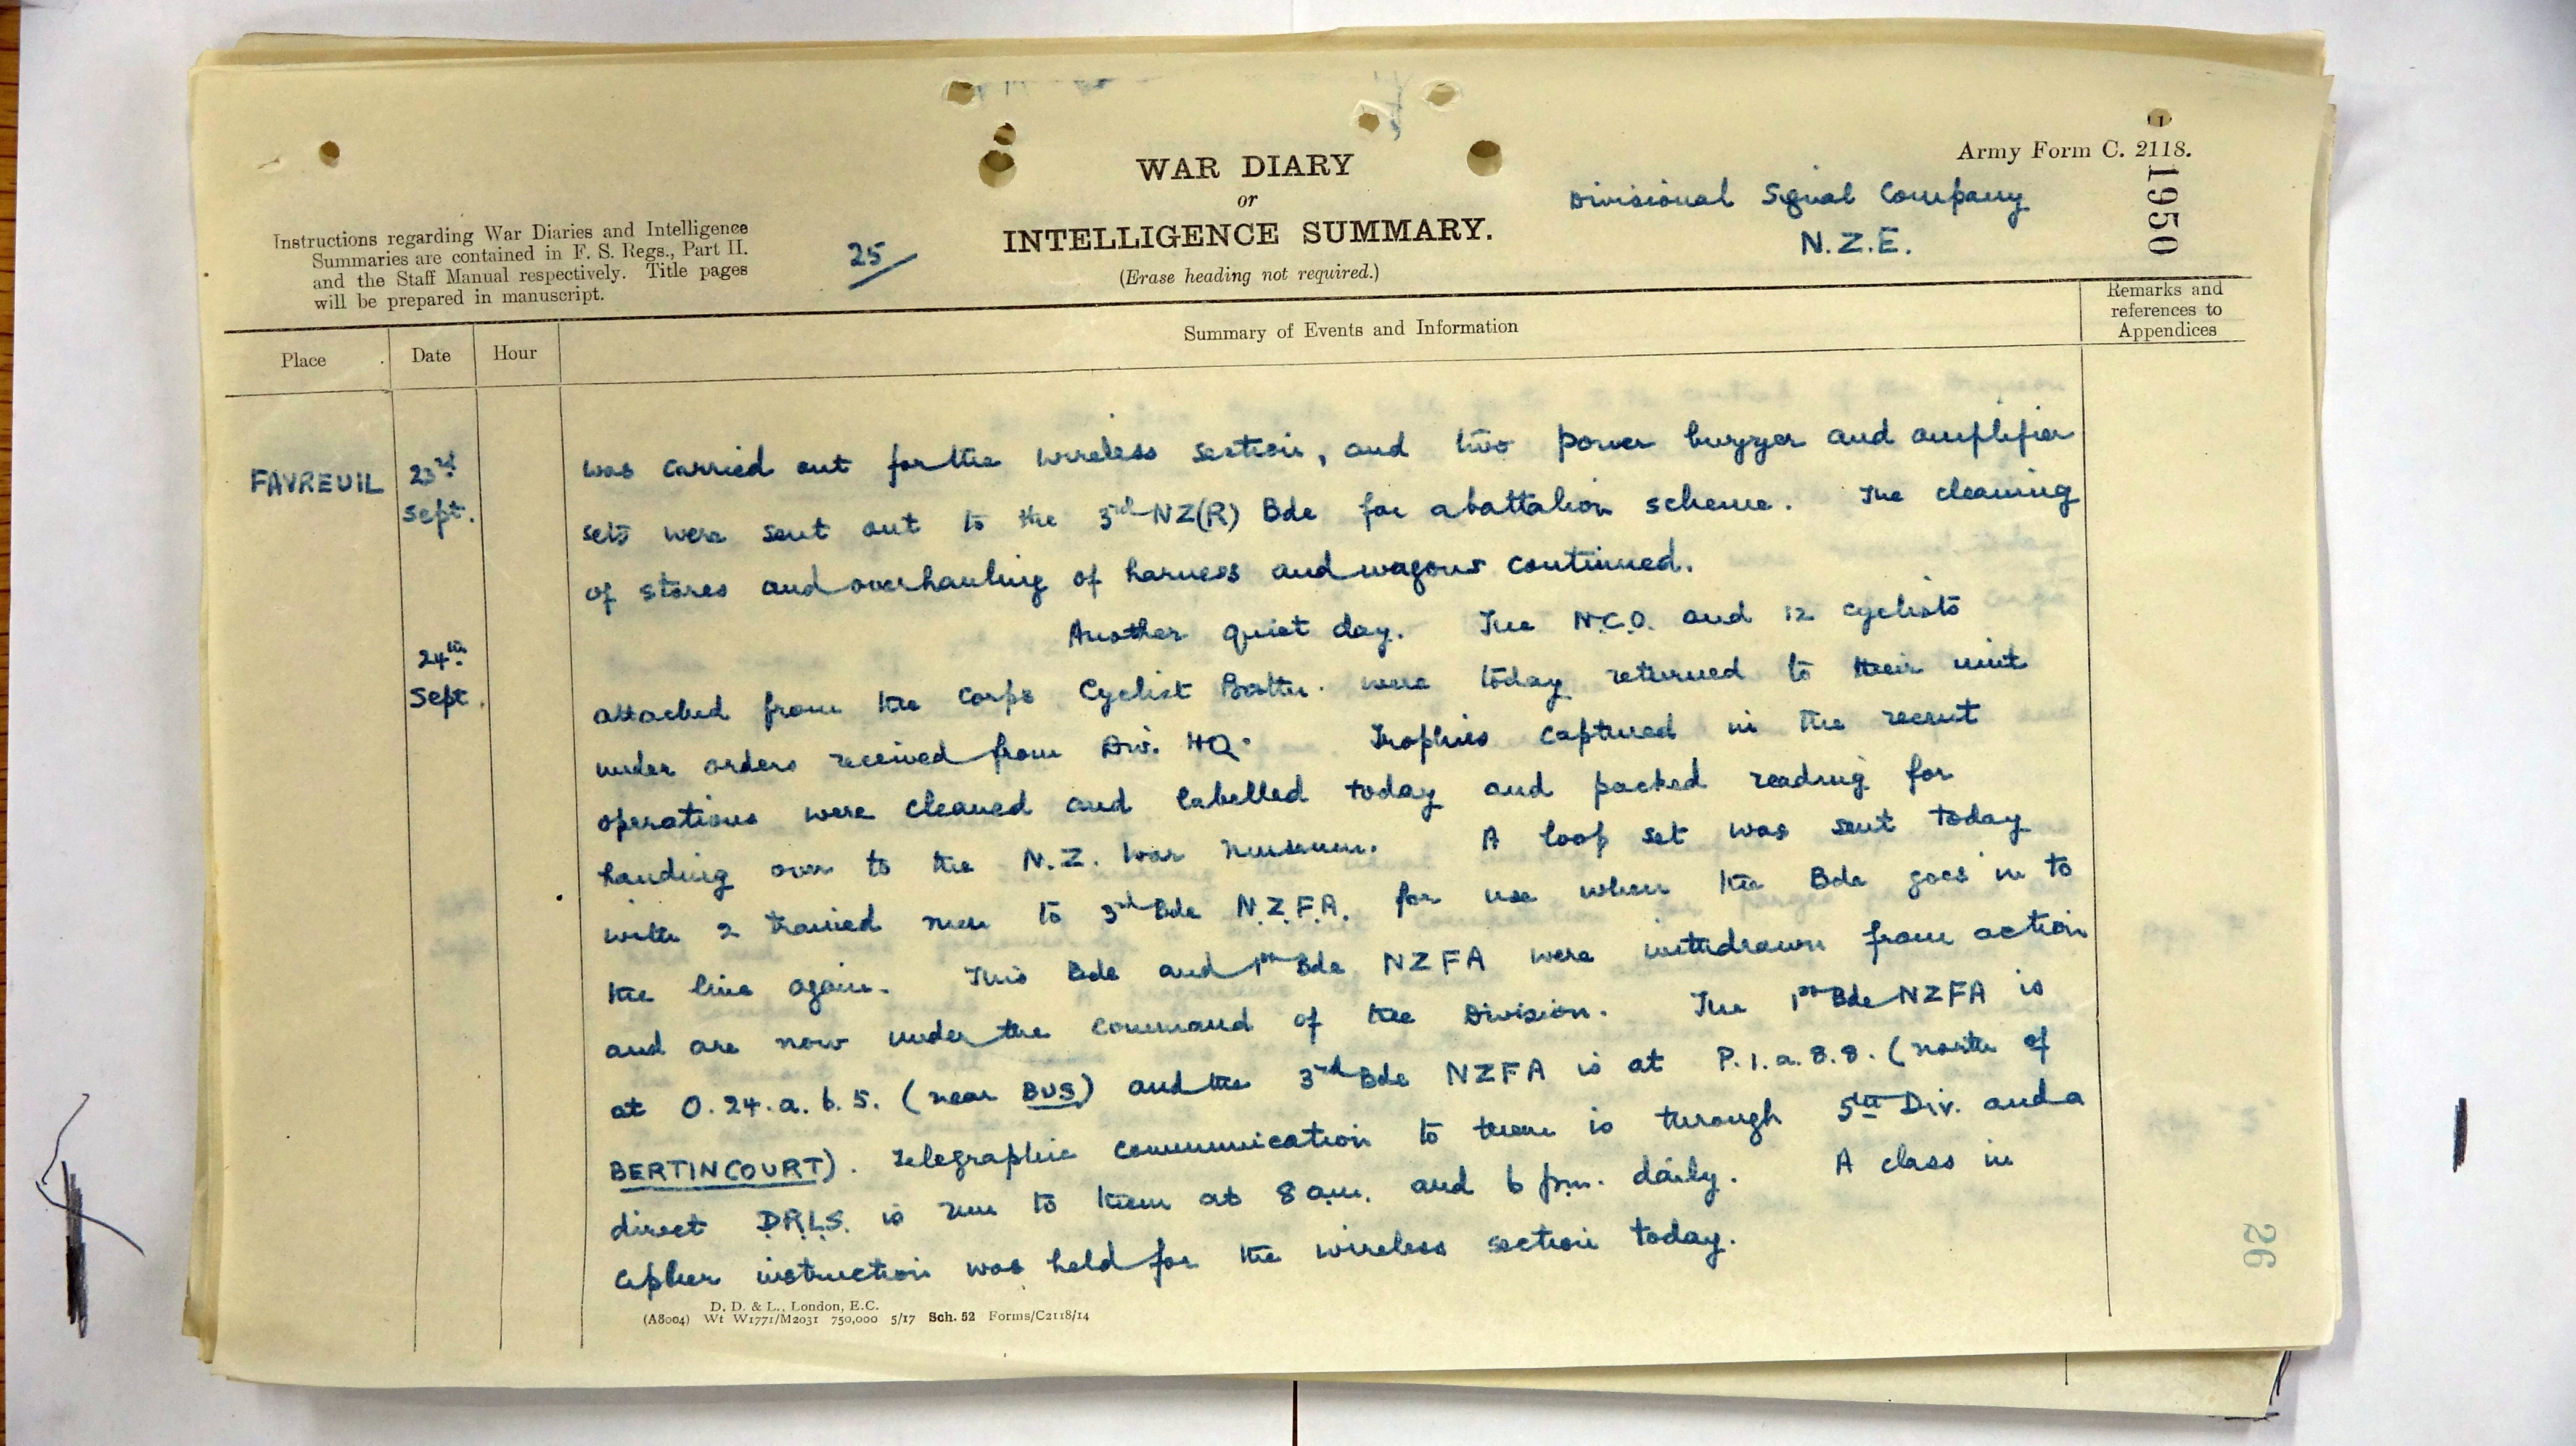 Army Form C. 2118.
1950
WAR DIARY
or
INTELLIGENCE SUMMARY.
(Erase heading not required.)
Divisional Signal Company
N.Z.E.
25
Instructions regarding War Diaries and Intelligence
Summaries are contained in F. S. Regs., Part II.
and the Staff Manual respectively. Title pages
will be prepared in manuscript.
Place
Date
Hour
Summary of Events and Information
Remarks and
references to
Appendices
FAVREUIL
23rd
Sept.
was carried out for the wireless section, and two power buzzer and amplifier
sets were sent out to the 3rd NZ(R) Bde for a battalion scheme. The cleaning
of stores and overhauling of harness and wagons continued.
24th
Sept.
Another quiet day. The N.C.O. and 12 cyclists
attached from the Corps Cyclist Battn. were today returned to their unit
under orders received from Div. HQ. Trophies captured in the recent
operations were cleaned and labelled today and packed reading for
handing over to the N.Z. War Museum. A loop set was sent today
with 2 trained men to 3rd Bde N.Z.F.A. for use when the Bde goes in to
the line again. This Bde and 1st Bde NZFA were withdrawn from action
and are now under the command of the Division. The 1st Bde NZFA is
at O.24.a.6.5. (near BUS) and the 3rd Bde NZFA is at P.1.a.8.8. (north of
BERTINCOURT). Telegraphic communication to them is through 5th Div. and a
direct D.R.L.S. is run to them at 8 a.m. and 6 p.m. daily. A class in
cipher instruction was held for the wireless section today.
26
D. D. & L., London, E.C.
(A8004) Wt W1771/M2031 750,000 5/17 Sch. 52 Forms/C2118/14